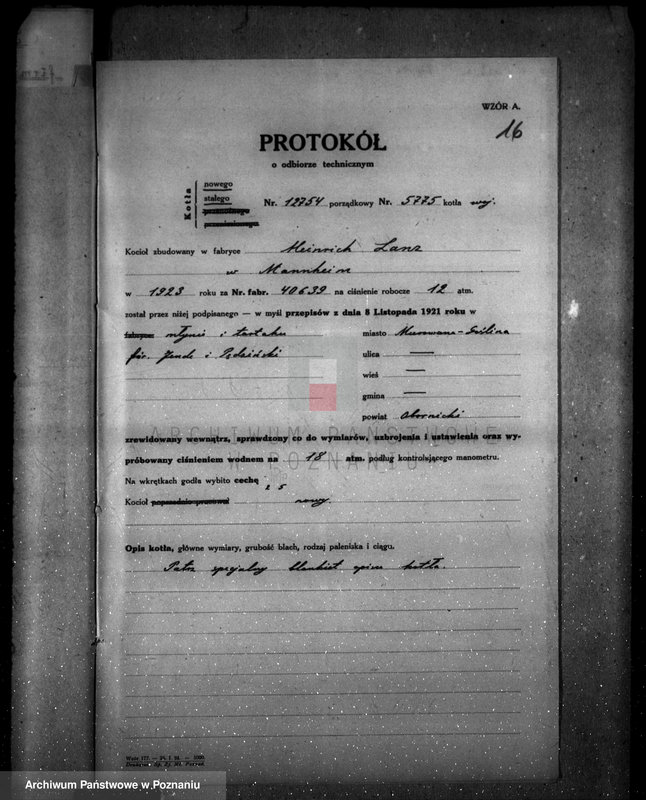 WZÓR A.
16
PROTOKÓŁ
o odbiorze technicznym
Kotła
nowego
stałego
przenośnego
przewoźnego
Nr. 12754 porządkowy Nr. 5775 kotła woj.
Kocioł zbudowany w fabryce Heinrich Lanz
w Mannheim
w 1923 roku za Nr. fabr. 40639 na ciśnienie robocze 12 atm.
został przez niżej podpisanego — w myśl przepisów z dnia 8 Listopada 1921 roku w
fabryce: młynie i tartaku
miasto Murowana-Goślina
fir. i
ulica —
wieś —
gmina —
powiat Obornicki
zrewidowany wewnątrz, sprawdzony co do wymiarów, uzbrojenia i ustawienia oraz wy-
próbowany ciśnieniem wodnem na 18 atm. podług kontrolującego manometru.
Na wkrętkach godła wybito cechę
Kocioł poprzednio pracował nowy.
Opis kotła, główne wymiary, grubość blach, rodzaj paleniska i ciągu.
Patrz specjalny blankiet opisu kotła.
Wzór 177. — 24. I. 24. — 1000.
ARCHIWUM PAŃSTWOWE
W POZNANIU
Archiwum Państwowe w Poznaniu